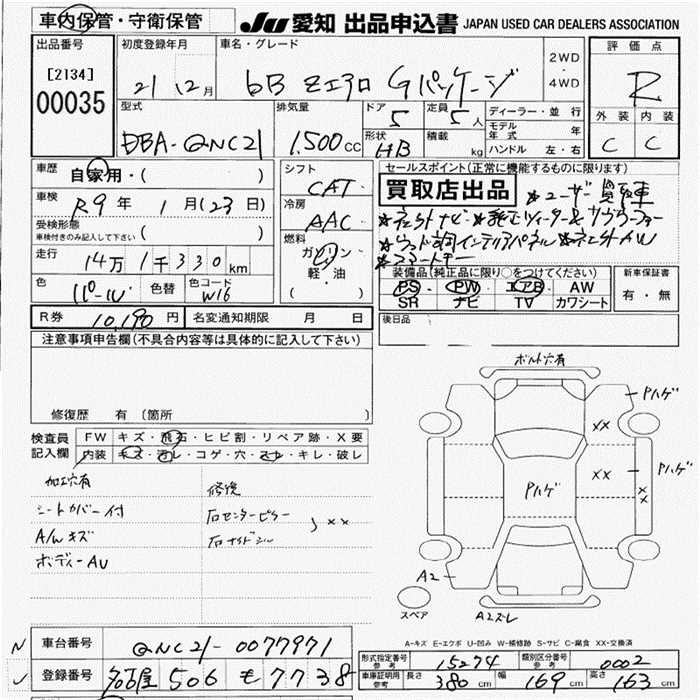 車内保管・守衛保管
JU 愛知 出品申込書 JAPAN USED CAR DEALERS ASSOCIATION
出品番号
[2134]
00035
初度登録年月
21 12月
車名・グレード
bB Zエアロ Gパッケージ
2WD
・
4WD
評価点
R
外装 内装
C C
型式
DBA-QNC21
排気量
1,500 cc
ドア
5
定員
5人
形状
HB
積載
kg
ディーラー・並行
モデル
年式 年
ハンドル 左・右
車歴
自家用・( )
車検
R9年 1月(23日)
受検形態
車検付きのみ記入して下さい ( )
走行
14万1千330km
色
パール
色替
色コード
W16
シフト
CAT
冷房
AAC
燃料
ガソリン
軽・油
( )
セールスポイント(正常に機能するものに限ります)
買取店出品
★ユーザー買取車
★インテリアパネル
★スマートキー
装備品(純正品に限り○をつけてください)
PS PW エアB AW
SR ナビ TV カワシート
新車保証書
有・無
R券 10,190円
名変通知期限 月 日
後日品
注意事項申告欄(不具合内容等は具体的に記入して下さい)
修復歴 有 (箇所 )
検査員
記入欄
FW キズ・飛石・ヒビ割・リペア跡・X要
内装 キズ・汚レ・コゲ・穴・スレ・キレ・破レ
加工穴有
シートカバー付
A/Wキズ
ボディーAU
修復
右センターピラー
右サイドシル
XX
ボルト穴有
Pハゲ
XX
Pハゲ
XX
Pハゲ
XX
A2
スペア
A2ズレ
A-キズ E-エクボ U-凹み W-補修跡 S-サビ C-腐食 XX-交換済
N
車台番号 QNC21-0077971
レ
登録番号 名古屋 506 も 7738
型式指定番号
参考
15274
類別区分番号
参考
0002
車庫証明用
参考
長さ 380cm 幅 169cm 高さ 163cm